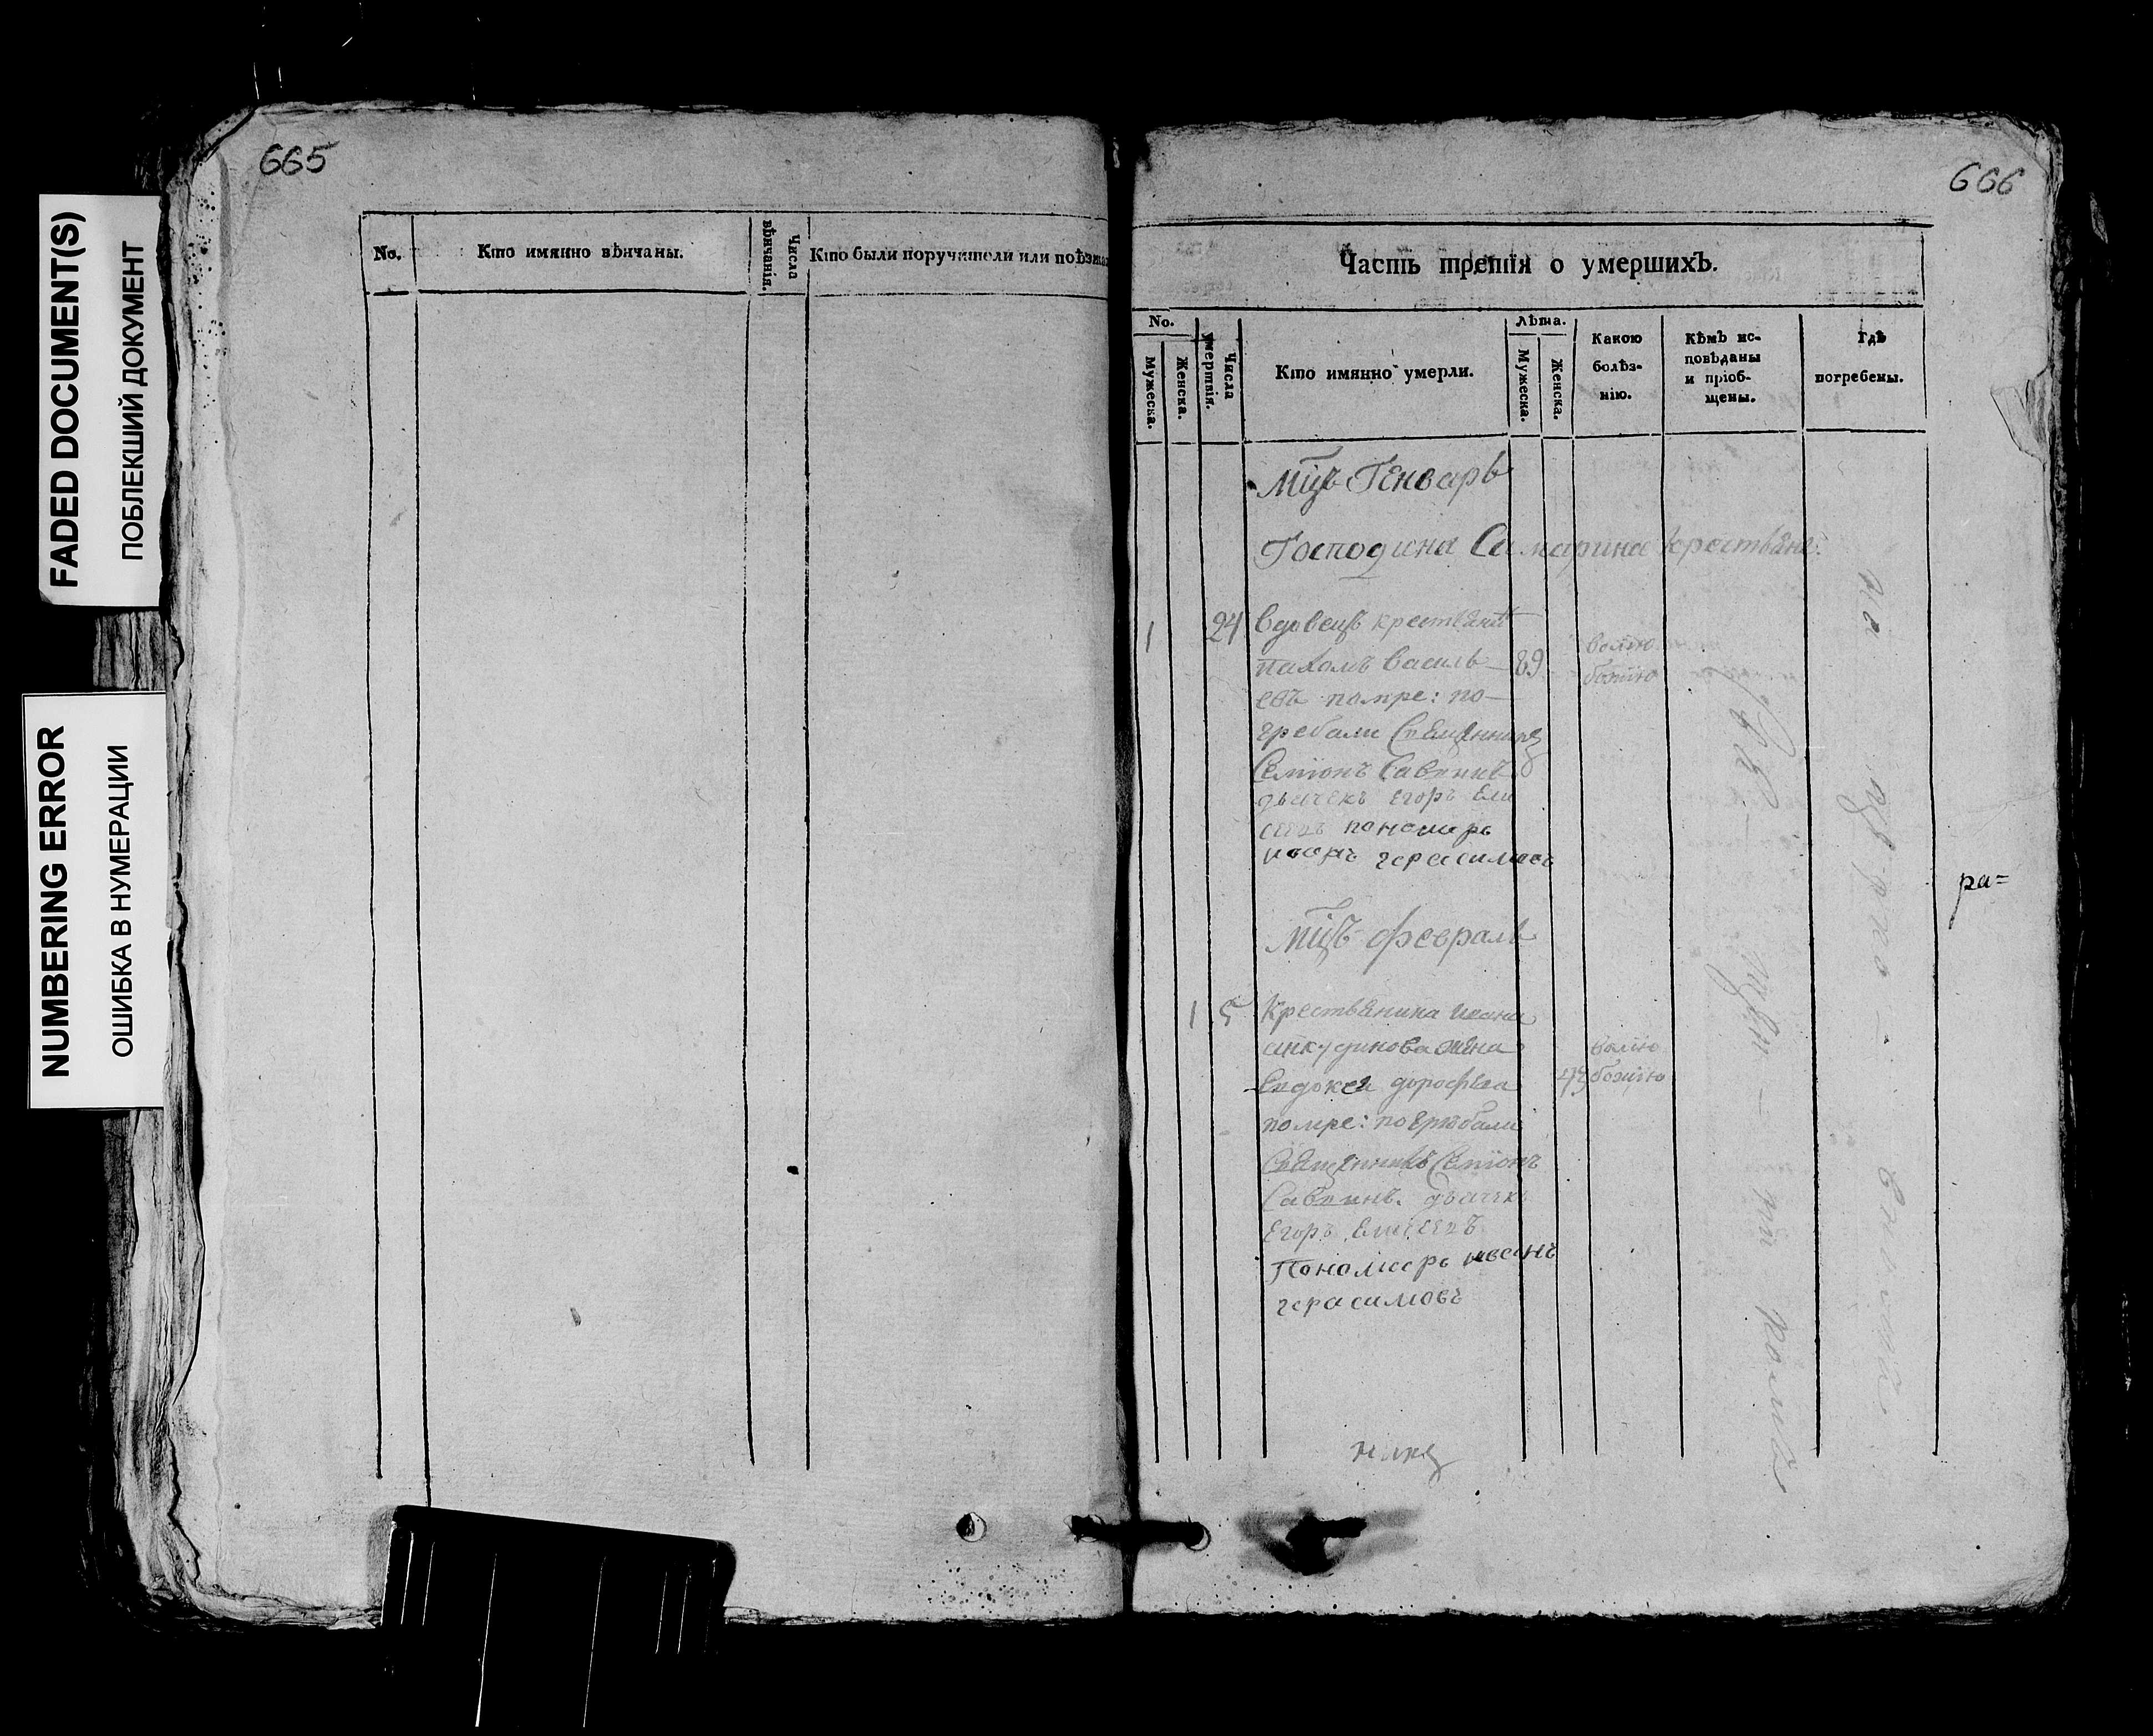 FADED DOCUMENT(S)
ПОБЛЕКШИЙ ДОКУМЕНТ
NUMBERING ERROR
ОШИБКА В НУМЕРАЦИИ
665
No.
Кто имянно вѣнчаны.
Числа вѣнчанія.
Кто были поручители или поѣзжа
666
Часть третія о умершихЪ.
No.
Мужеска.
Женска.
Числа умертвія.
Кто имянно умерли.
Лѣта.
Мужеска.
Женска.
Какою
болѣз-
нію.
КѣмЪ ис-
повѣданы
и пріоб-
щены.
Гдѣ
погребены.
Мцъ Генварь
Господина Самарина крестьяне
1 24 Вдовецъ крестьянинъ
пахомъ Василь 89 волею
евъ помре: по божiю
гребали Священникъ
Семïонъ Саввинъ
дьячекъ Егоръ Ели
сеевъ пономарь
иванъ герасимовъ
ра=
Мцъ февраль
1 5 Крестьянина ивана
анкудинова жена волею
Евдокея дорофѣева 43 божiю
помре: погребали
Священникъ Семïонъ
Саввинъ. дьячекъ
Егоръ Елисеевъ
Пономарь иванъ
герасимовъ